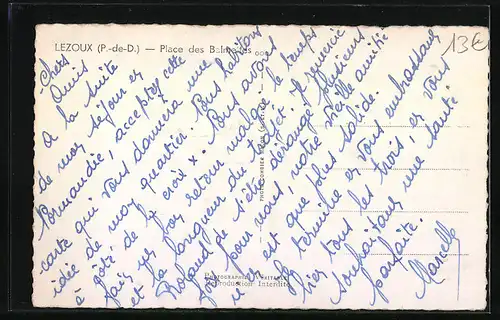 LEZOUX (P.-de-D.) — Place des
13€
Chers Amis
à la suite
de mon séjour en
Normandie, acceptez cette
carte qui vous donnera une
idée de mon quartier. Nous habitons
à côté de la croix x. Nous avons
fait un bon retour malgré le temps
et la longueur du trajet. Je remercie
Roland de s'être dérangé plusieurs
fois pour nous, notre vieille amitié
n'en est que plus solide.
Je termine en vous embrassant
bien tous les trois, et vous
souhaitant une santé
parfaite.
Marcelle
Reproduction Interdite